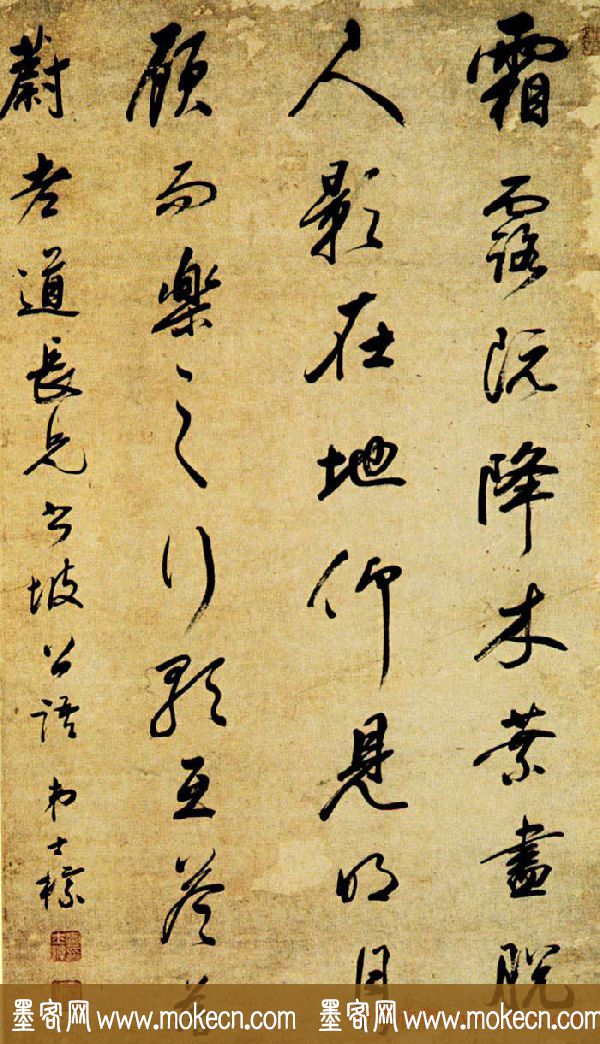 霜露既降木葉盡脫
人影在地仰見明月
顧而樂之行歌互荅
蔚老道長兄書坡公語 弟士標
墨客网 www.mokecn.com 墨客网 www.mokecn.com